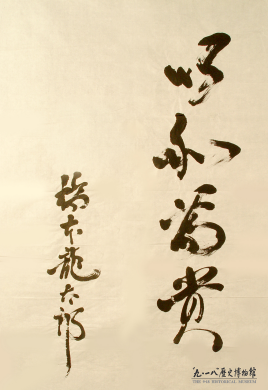 以和為貴
橋本龍太郎
九·一八歷史博物館
THE 9·18 HISTORICAL MUSEUM